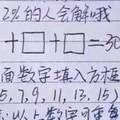 2%的人会解哦
+□+□=30
面数字填入方框
5,7,9,11,13,15)
:以上数字可重复